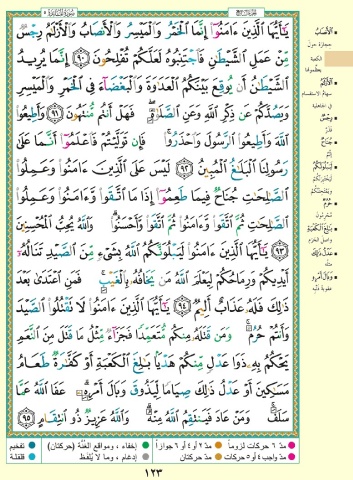 سورة المائدة ٥
الجزء السابع
يَٰٓأَيُّهَا ٱلَّذِينَ ءَامَنُوٓا۟ إِنَّمَا ٱلْخَمْرُ وَٱلْمَيْسِرُ وَٱلْأَنصَابُ وَٱلْأَزْلَٰمُ رِجْسٌ
مِّنْ عَمَلِ ٱلشَّيْطَٰنِ فَٱجْتَنِبُوهُ لَعَلَّكُمْ تُفْلِحُونَ ٩٠ إِنَّمَا يُرِيدُ
ٱلشَّيْطَٰنُ أَن يُوقِعَ بَيْنَكُمُ ٱلْعَدَٰوَةَ وَٱلْبَغْضَآءَ فِى ٱلْخَمْرِ وَٱلْمَيْسِرِ
وَيَصُدَّكُمْ عَن ذِكْرِ ٱللَّهِ وَعَنِ ٱلصَّلَوٰةِ ۖ فَهَلْ أَنتُم مُّنتَهُونَ ٩١ وَأَطِيعُوا۟
ٱللَّهَ وَأَطِيعُوا۟ ٱلرَّسُولَ وَٱحْذَرُوا۟ ۚ فَإِن تَوَلَّيْتُمْ فَٱعْلَمُوٓا۟ أَنَّمَا عَلَىٰ
رَسُولِنَا ٱلْبَلَٰغُ ٱلْمُبِينُ ٩٢ لَيْسَ عَلَى ٱلَّذِينَ ءَامَنُوا۟ وَعَمِلُوا۟
ٱلصَّٰلِحَٰتِ جُنَاحٌ فِيمَا طَعِمُوٓا۟ إِذَا مَا ٱتَّقَوا۟ وَّءَامَنُوا۟ وَعَمِلُوا۟
ٱلصَّٰلِحَٰتِ ثُمَّ ٱتَّقَوا۟ وَّءَامَنُوا۟ ثُمَّ ٱتَّقَوا۟ وَّأَحْسَنُوا۟ ۗ وَٱللَّهُ يُحِبُّ ٱلْمُحْسِنِينَ
٩٣ يَٰٓأَيُّهَا ٱلَّذِينَ ءَامَنُوا۟ لَيَبْلُوَنَّكُمُ ٱللَّهُ بِشَىْءٍ مِّنَ ٱلصَّيْدِ تَنَالُهُۥٓ
أَيْدِيكُمْ وَرِمَاحُكُمْ لِيَعْلَمَ ٱللَّهُ مَن يَخَافُهُۥ بِٱلْغَيْبِ ۚ فَمَنِ ٱعْتَدَىٰ بَعْدَ
ذَٰلِكَ فَلَهُۥ عَذَابٌ أَلِيمٌ ٩٤ يَٰٓأَيُّهَا ٱلَّذِينَ ءَامَنُوا۟ لَا تَقْتُلُوا۟ ٱلصَّيْدَ
وَأَنتُمْ حُرُمٌ ۚ وَمَن قَتَلَهُۥ مِنكُم مُّتَعَمِّدًا فَجَزَآءٌ مِّثْلُ مَا قَتَلَ مِنَ ٱلنَّعَمِ
يَحْكُمُ بِهِۦ ذَوَا عَدْلٍ مِّنكُمْ هَدْيًۢا بَٰلِغَ ٱلْكَعْبَةِ أَوْ كَفَّٰرَةٌ طَعَامُ
مَسَٰكِينَ أَوْ عَدْلُ ذَٰلِكَ صِيَامًا لِّيَذُوقَ وَبَالَ أَمْرِهِۦ ۗ عَفَا ٱللَّهُ عَمَّا
سَلَفَ ۚ وَمَنْ عَادَ فَيَنتَقِمُ ٱللَّهُ مِنْهُ ۗ وَٱللَّهُ عَزِيزٌ ذُو ٱنتِقَامٍ ٩٥
الْأَنصَابُ
حجارة حول
الكعبة
يعظمونها
الْأَزْلَامُ
سهام الاستقسام
في الجاهلية
رِجْسٌ
قذر
جُنَاحٌ
إثم
لَيَبْلُوَنَّكُمُ
ليختبرنكم
ويمتحننكم
حُرُمٌ
محرمون
بَالِغَ الْكَعْبَةِ
واصل الحرم
عَدْلُ ذَٰلِكَ
مثله
وَبَالَ أَمْرِهِ
عقوبة ذنبه
مدّ ٦ حركات لزوماً
مدّ ٢ أو ٤ أو ٦ جوازاً
إخفاء، ومواقع الغُنَّة (حركتان)
تفخيم
مدّ واجب ٤ أو ٥ حركات
مدّ حركتان
إدغام، وما لا يُلفَظ
قلقلة
١٢٣